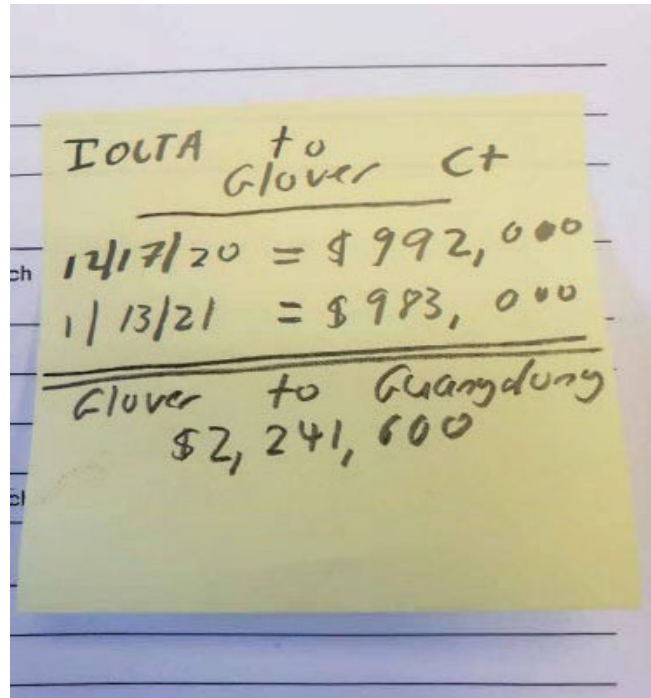 IOLTA to
Glover Ct
12/17/20 = $992,000
1/13/21 = $983,000
Glover to Guangdong
$2,241,600
ch